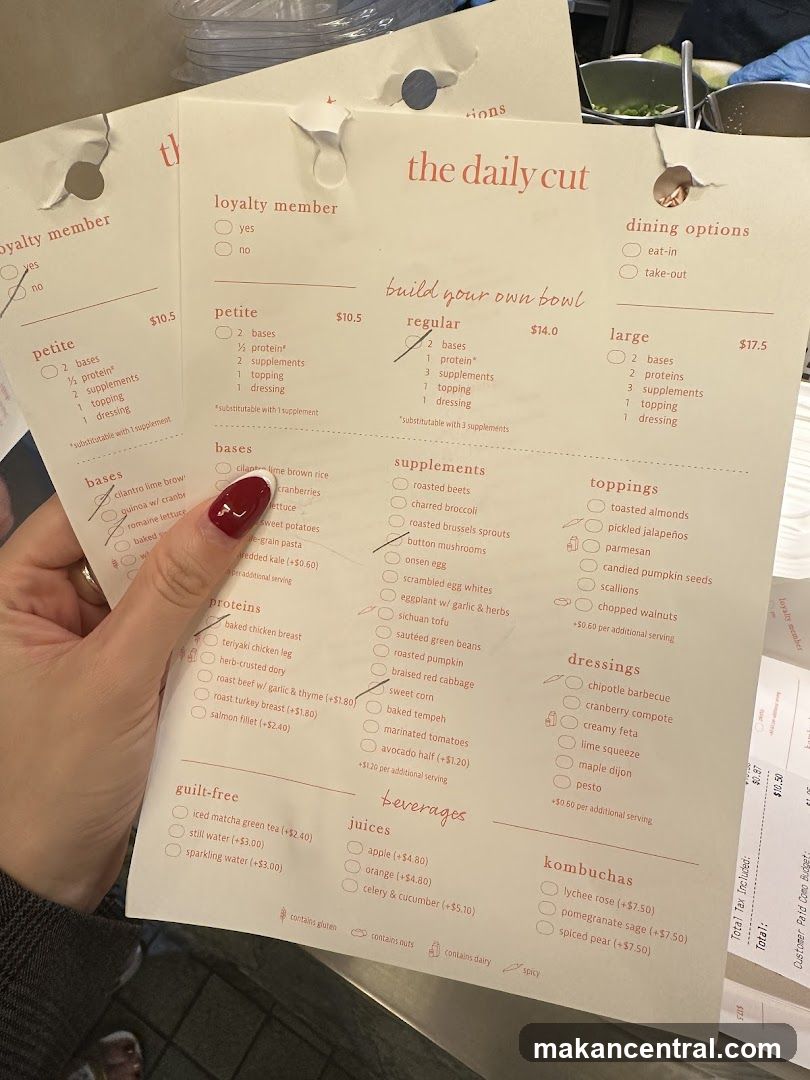 the daily cut
loyalty member
yes
no
dining options
eat-in
take-out
build your own bowl
petite $10.5
2 bases
½ protein#
2 supplements
1 topping
1 dressing
#substitutable with 1 supplement
regular $14.0
2 bases
1 protein*
3 supplements
1 topping
1 dressing
*substitutable with 3 supplements
large $17.5
2 bases
2 proteins
3 supplements
1 topping
1 dressing
bases
cilantro lime brown rice
cranberries
lettuce
sweet potatoes
pasta
kale (+$0.60)
per additional serving
proteins
baked chicken breast
teriyaki chicken leg
herb-crusted dory
roast beef w/ garlic & thyme (+$1.80)
roast turkey breast (+$1.80)
salmon fillet (+$2.40)
supplements
roasted beets
charred broccoli
roasted brussels sprouts
button mushrooms
onsen egg
scrambled egg whites
eggplant w/ garlic & herbs
sichuan tofu
sautéed green beans
roasted pumpkin
braised red cabbage
sweet corn
baked tempeh
marinated tomatoes
avocado half (+$1.20)
+$1.20 per additional serving
toppings
toasted almonds
pickled jalapeños
parmesan
candied pumpkin seeds
scallions
chopped walnuts
+$0.60 per additional serving
dressings
chipotle barbecue
cranberry compote
creamy feta
lime squeeze
maple dijon
pesto
+$0.60 per additional serving
beverages
guilt-free
iced matcha green tea (+$2.40)
still water (+$3.00)
sparkling water (+$3.00)
juices
apple (+$4.80)
orange (+$4.80)
celery & cucumber (+$5.10)
kombuchas
lychee rose (+$7.50)
pomegranate sage (+$7.50)
spiced pear (+$7.50)
contains gluten
contains nuts
contains dairy
spicy
loyalty member
yes
no
petite $10.5
2 bases
½ protein#
2 supplements
1 topping
1 dressing
#substitutable with 1 supplement
bases
cilantro lime brow
quinoa w/ cranbe
romaine lettuce
baked
loyalty member
$0.97
Total Tax Included:
$10.50
Total:
Customer Paid Como Budget:
makancentral.com